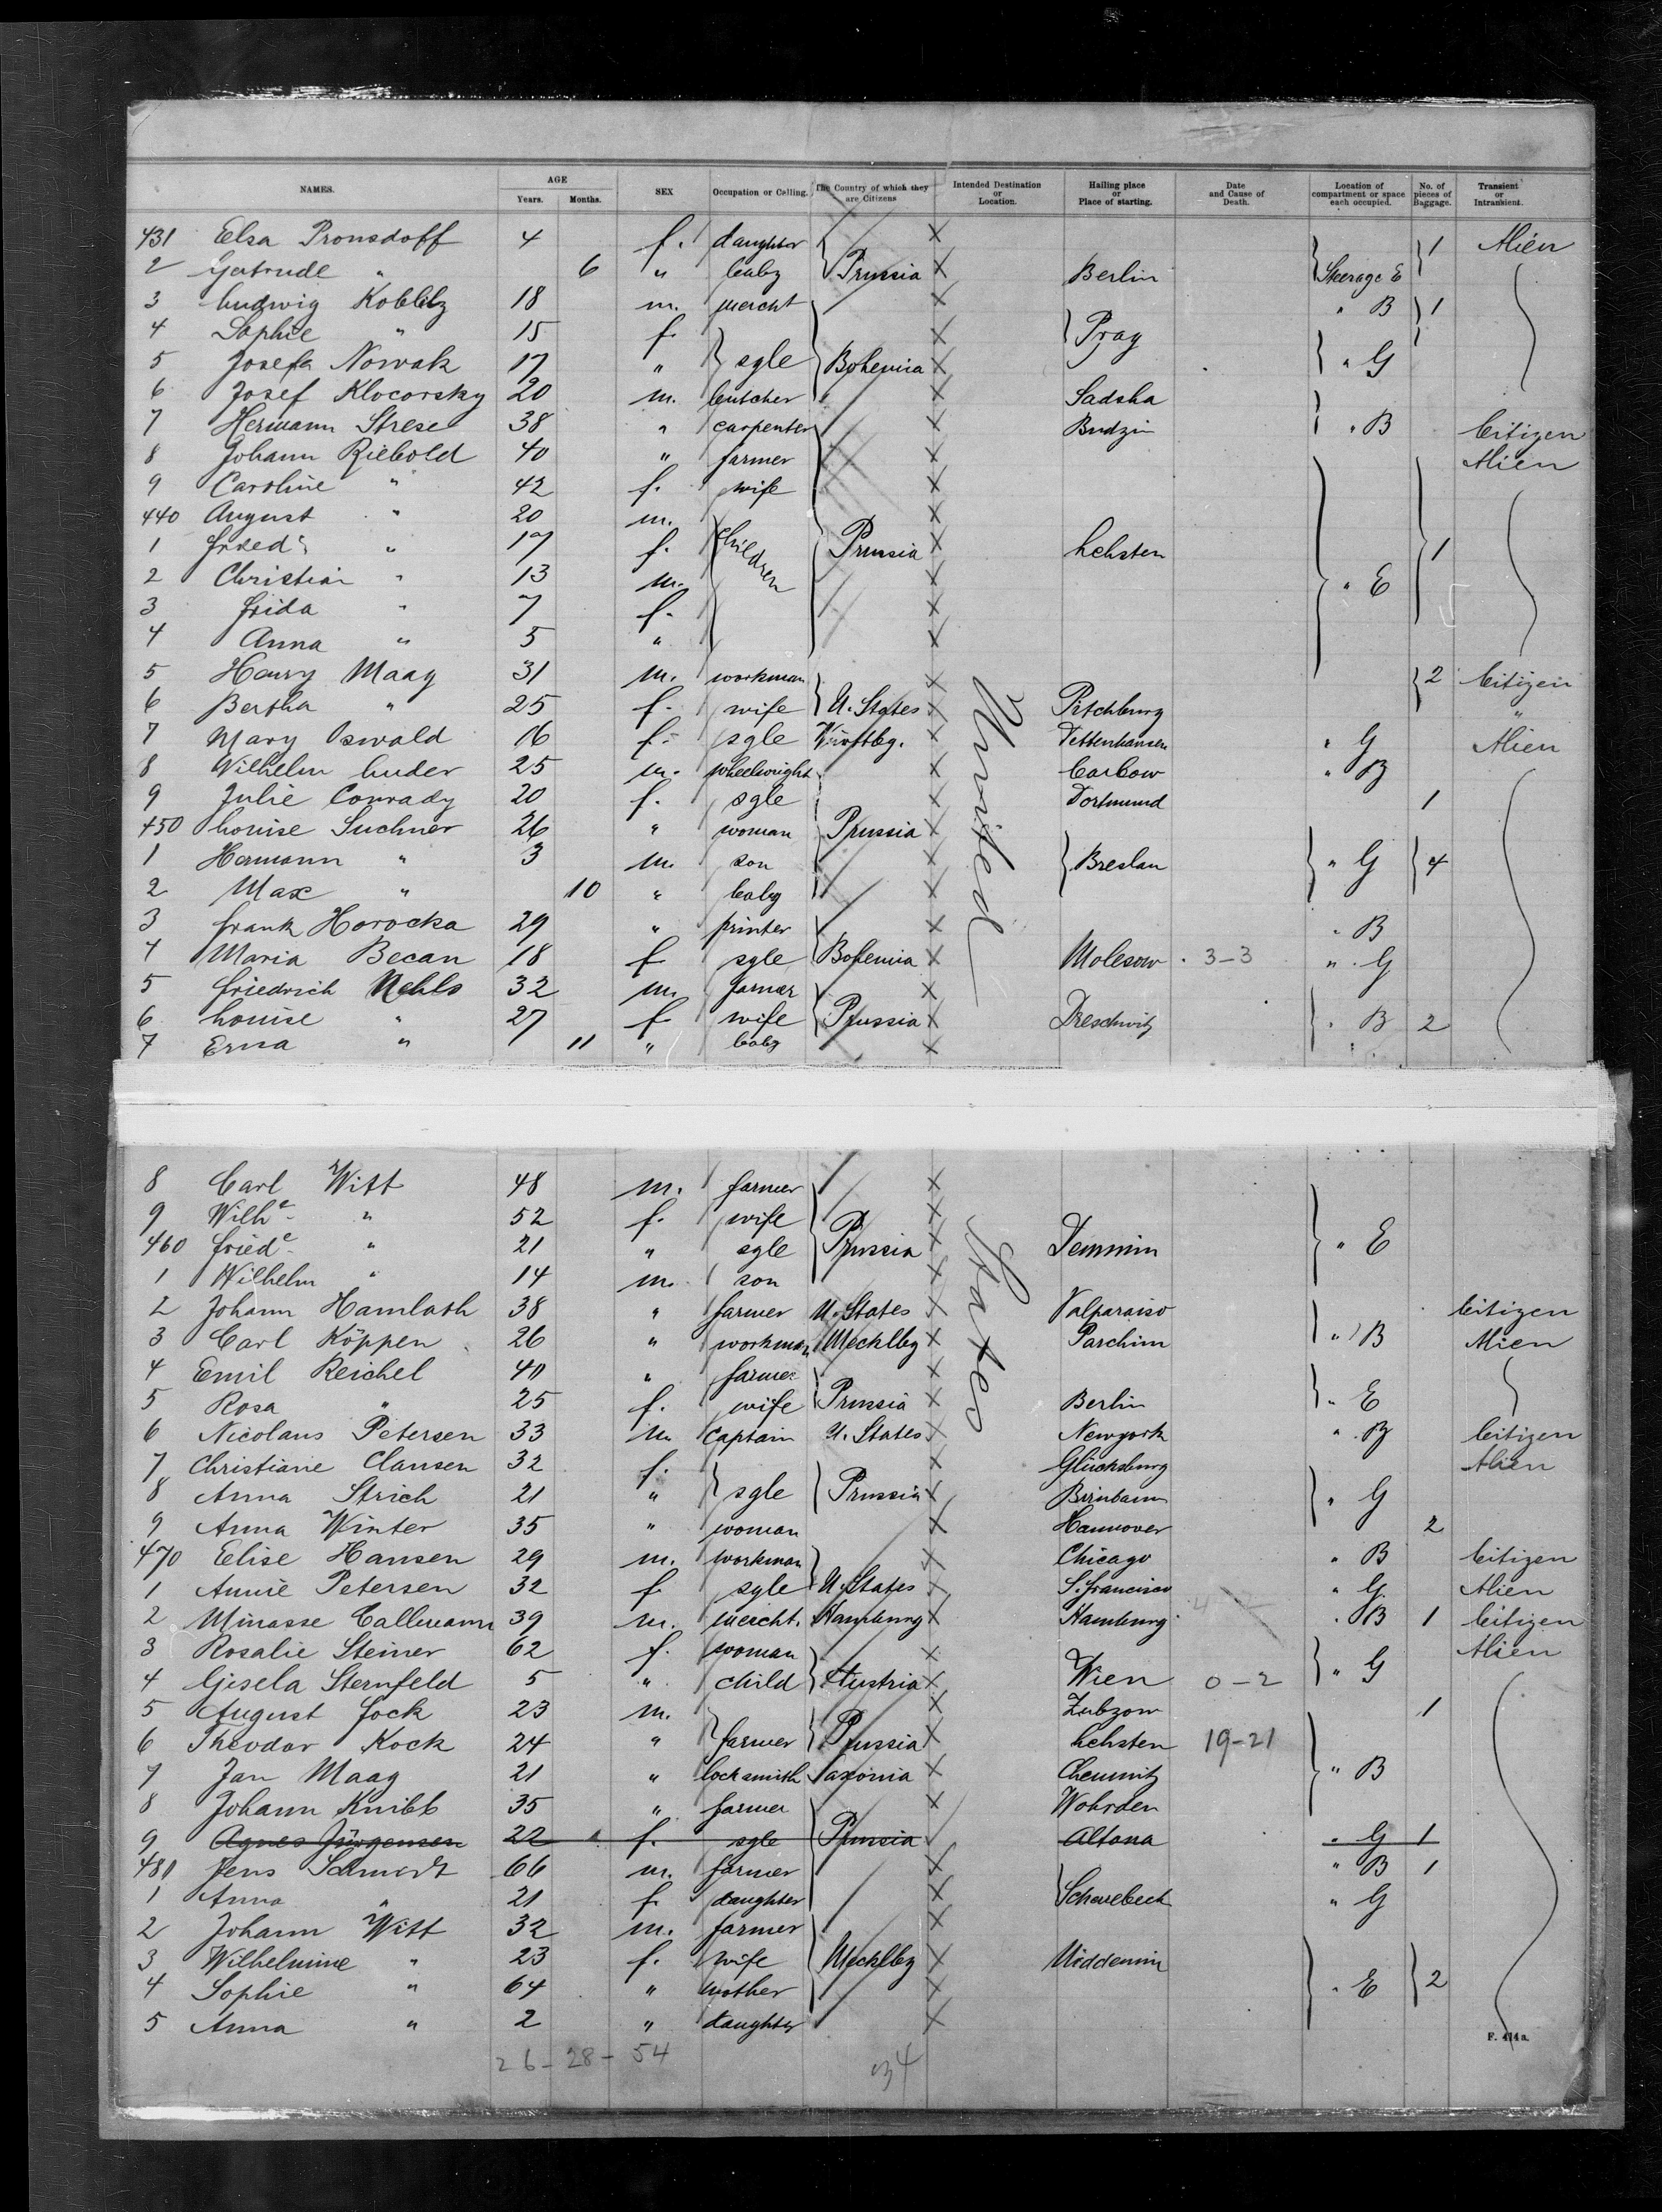 NAMES. AGE Years. Months. SEX Occupation or Calling. The Country of which they are Citizens Intended Destination or Location. Hailing place or Place of starting. Date and Cause of Death. Location of compartment or space each occupied. No. of pieces of Baggage. Transient or Intransient.
431 Elsa Pronsdoff 4 f. daughter 1 Alien
2 Gertrude " 6 " baby Prussia Berlin Steerage E
3 Ludwig Koblitz 18 m. mercht " B 1
4 Sophie " 15 f. Prag
5 Josefa Nowak 17 " sgle Bohemia " G
6 Josef Klocorsky 20 m. butcher Sadska
7 Hermann Strese 38 " carpenter Budzin " B Citizen
8 Johann Riebold 40 " farmer Alien
9 Caroline " 42 f. wife
440 August " 20 m.
1 Fried. " 17 f. children Prussia Lehsten 1
2 Christian " 13 m. " E
3 Frida " 7 f.
4 Anna " 5 "
5 Henry Maag 31 m. workman 2 Citizen
6 Bertha " 25 f. wife U. States Pitchburg "
7 Mary Oswald 16 f. sgle Württbg. Dettenhausen " G Alien
8 Wilhelm Luder 25 m. wheelwright Carbow " B
9 Julie Conrady 20 f. sgle Dortmund 1
450 Louise Suchner 26 " woman Prussia
1 Hermann " 3 m. son Breslau " G 4
2 Max " 10 " baby
3 Frank Horocka 29 " printer " B
4 Maria Becan 18 f sgle Bohemia Molesow 3-3 " G
5 Friedrich Nehls 32 m. farmer
6 Louise " 27 f. wife Prussia Dreschvitz " B 2
7 Erna " 11 " baby
United States
8 Carl Witt 48 m. farmer
9 Wilhe " 52 f. wife
460 Friede " 21 " sgle Prussia Demmin " E
1 Wilhelm " 14 m. son
2 Johann Hamlath 38 " farmer U. States Valparaiso Citizen
3 Carl Köppen 26 " workman Mecklbg Parchim " B Alien
4 Emil Reichel 40 " farmer
5 Rosa " 25 f. wife Prussia Berlin " E
6 Nicolaus Petersen 33 m. Captain U. States Newyork " B Citizen
7 Christiane Clausen 32 f. Glücksburg Alien
8 Anna Strich 21 " sgle Prussia Birnbaum " G
9 Anna Winter 35 " woman Hannover 2
470 Elise Hansen 29 m. workman Chicago " B Citizen
1 Annie Petersen 32 f. sgle U. States S. Francisco " G Alien
2 Minasse Callmann 39 m. mercht. Hamburg Hamburg " B 1 Citizen
3 Rosalie Steiner 62 f. woman Alien
4 Gisela Sternfeld 5 " child Austria Wien 0-2 " G
5 August Jock 23 m. Zubzow 1
6 Theodor Kock 24 " farmer Prussia Lehsten 19-21
7 Jan Maag 21 " locksmith Saxonia Chemnitz " B
8 Johann Knibb 35 " farmer Wohrden
9 Agnes Jürgensen 22 " f. sgle Prussia Altona " G 1
480 Jens Schmidt 66 m. farmer " B 1
1 Anna " 21 f. daughter Scherrebeck " G
2 Johann Witt 32 m. farmer
3 Wilhelmine " 23 f. wife Mecklbg Middemin
4 Sophie " 64 " mother " E 2
5 Anna " 2 " daughter
F. 414a.
26-28-54 34